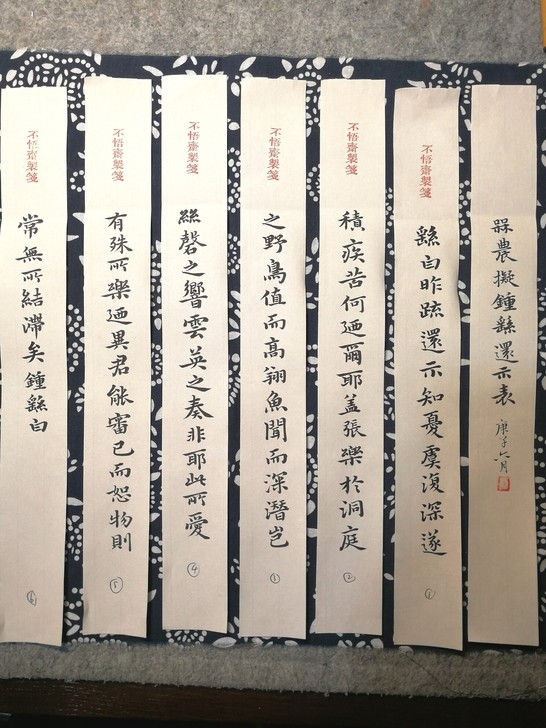 農擬鍾繇還示表
庚子六月
不悟齋製箋
繇白昨疏還示知憂虞復深遂
①
不悟齋製箋
積疾苦何迺爾耶蓋張樂於洞庭
②
不悟齋製箋
之野鳥值而高翔魚聞而深潛豈
③
不悟齋製箋
絲磬之響雲英之奏非耶此所愛
④
不悟齋製箋
有殊所樂迺異君能審己而恕物則
⑤
不悟齋製箋
常無所結滯矣鍾繇白
⑥